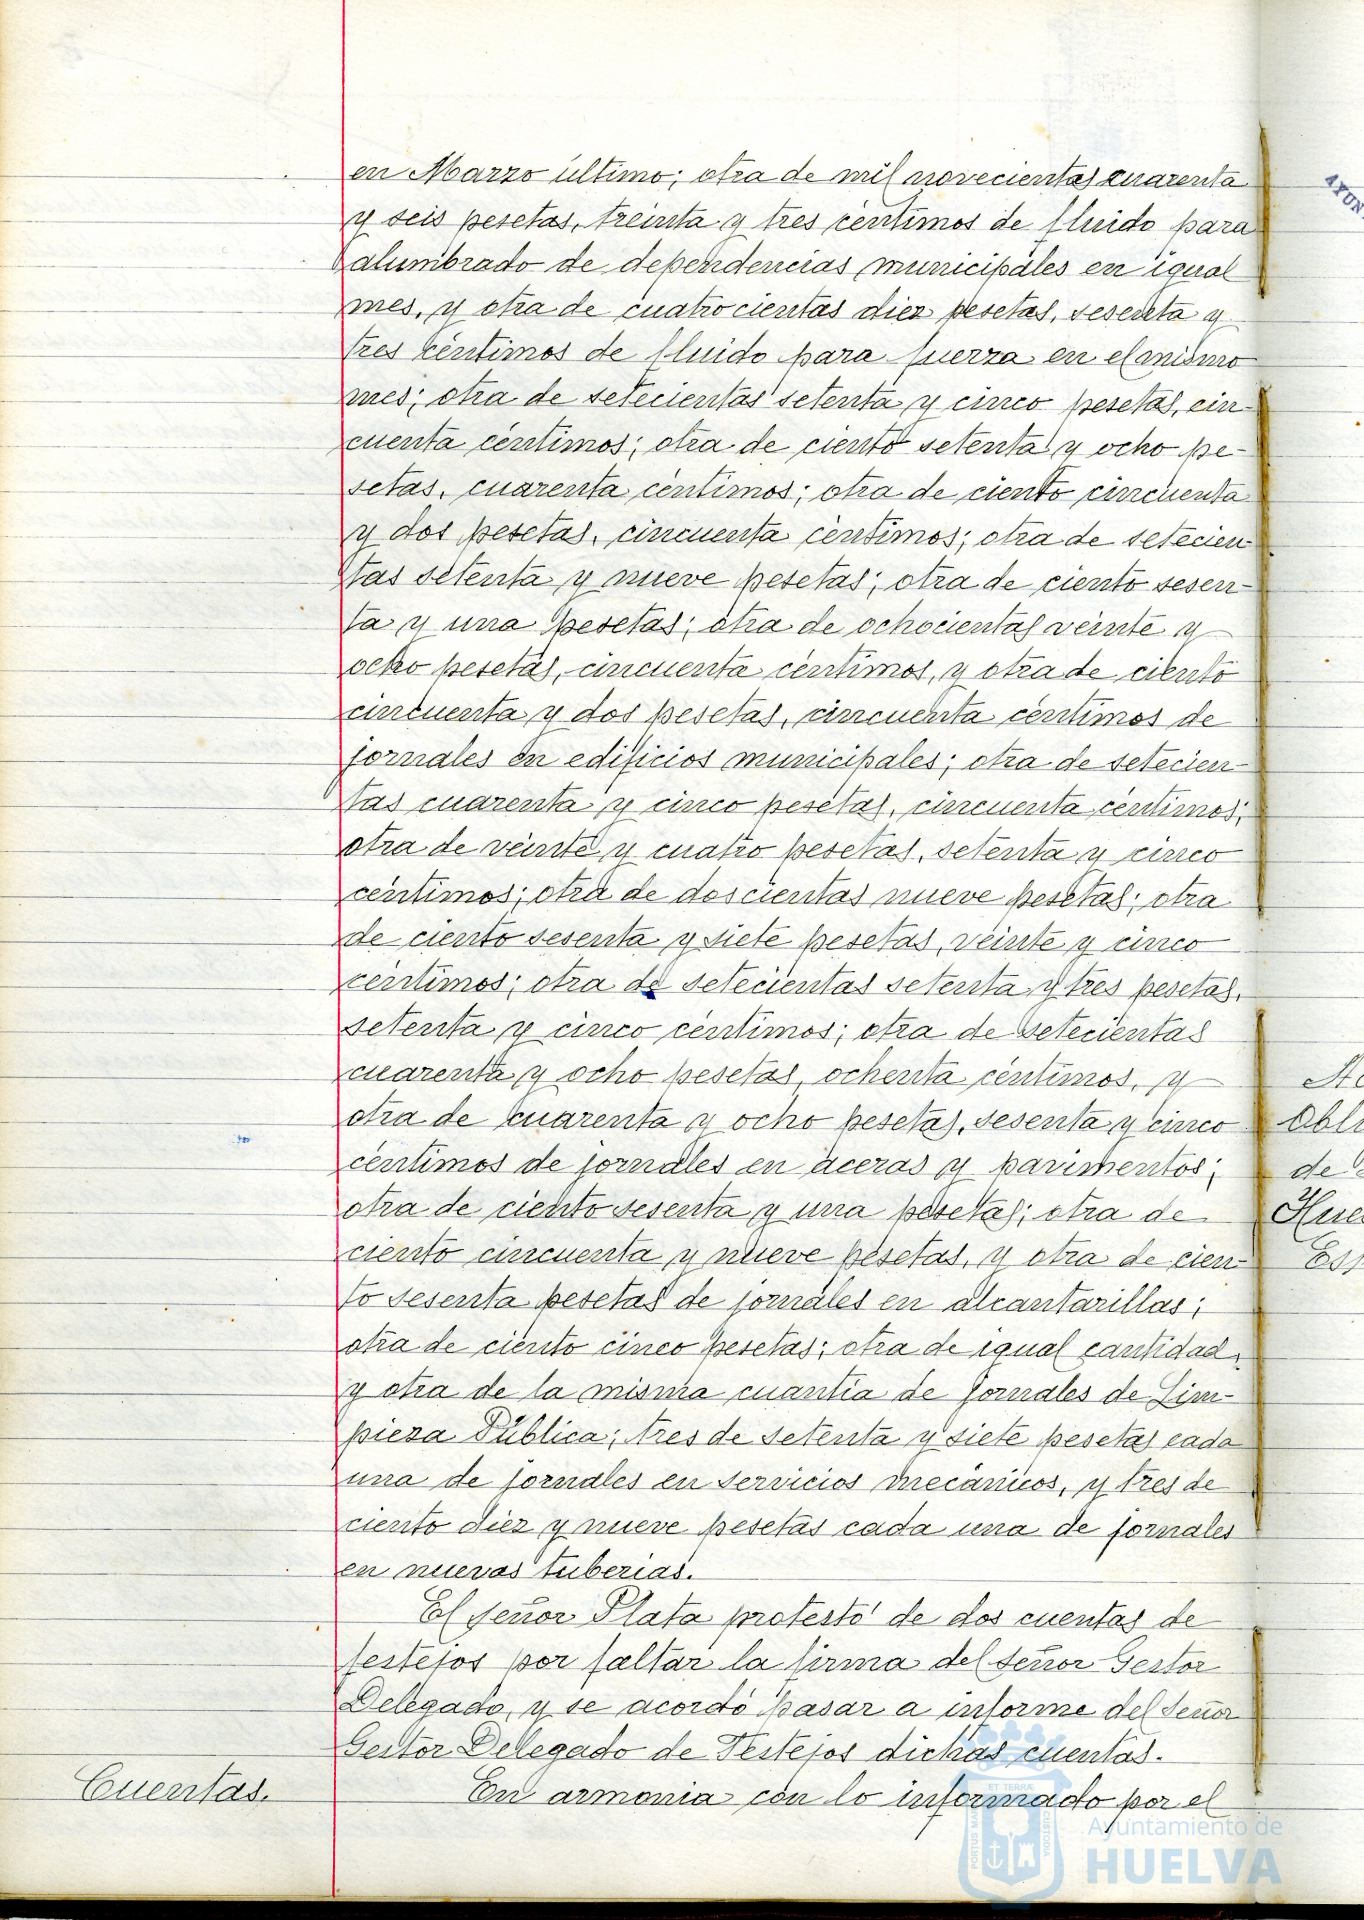 en Marzo último; otra de mil novecientas cuarenta
y seis pesetas, treinta y tres céntimos de fluido para
alumbrado de dependencias municipales en igual
mes, y otra de cuatrocientas diez pesetas, sesenta y
tres céntimos de fluido para fuerza en el mismo
mes; otra de setecientas setenta y cinco pesetas, cin-
cuenta céntimos; otra de ciento setenta y ocho pe-
setas, cuarenta céntimos; otra de ciento cincuenta
y dos pesetas, cincuenta céntimos; otra de setecien-
tas setenta y nueve pesetas; otra de ciento sesen-
ta y una pesetas; otra de ochocientas veinte y
ocho pesetas, cincuenta céntimos, y otra de ciento
cincuenta y dos pesetas, cincuenta céntimos de
jornales en edificios municipales; otra de setecien-
tas cuarenta y cinco pesetas, cincuenta céntimos;
otra de veinte y cuatro pesetas, setenta y cinco
céntimos; otra de doscientas nueve pesetas; otra
de ciento sesenta y siete pesetas, veinte y cinco
céntimos; otra de setecientas setenta y tres pesetas,
setenta y cinco céntimos; otra de setecientas
cuarenta y ocho pesetas, ochenta céntimos, y
otra de cuarenta y ocho pesetas, sesenta y cinco
céntimos de jornales en aceras y pavimentos;
otra de ciento sesenta y una pesetas; otra de
ciento cincuenta y nueve pesetas, y otra de cien-
to sesenta pesetas de jornales en alcantarillas;
otra de ciento cinco pesetas; otra de igual cantidad,
y otra de la misma cuantía de jornales de Lim-
pieza Pública; tres de setenta y siete pesetas cada
una de jornales en servicios mecánicos, y tres de
ciento diez y nueve pesetas cada una de jornales
en nuevas tuberias.
El señor Plata protestó de dos cuentas de
festejos por faltar la firma del señor Gestor
Delegado, y se acordó pasar a informe del Señor
Gestor Delegado de Festejos dichas cuentas.
Cuentas.
En armonia con lo informado por el
AYUN
de
Ayuntamiento de
HUELVA